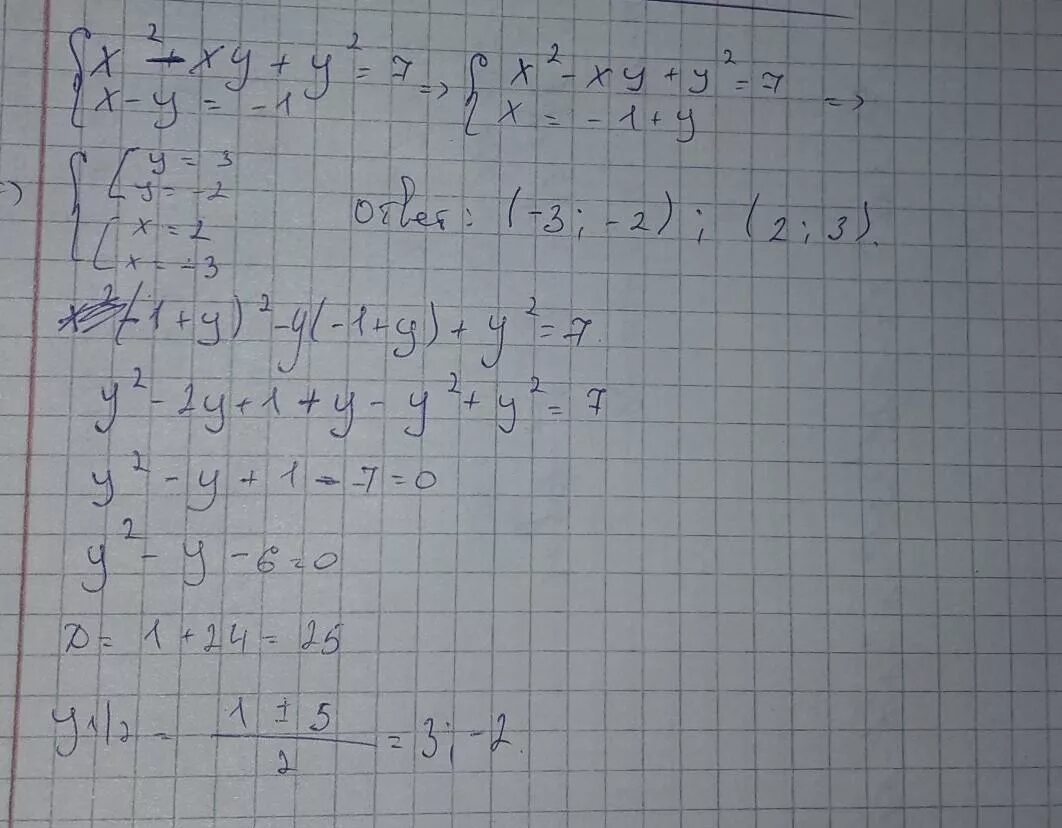 { x² - xy + y² = 7 => { x² - xy + y² = 7 =>
{ x - y = -1 { x = -1 + y
=> { [ y = 3
[ y = -2
{ [ x = 2
[ x = -3
Ответ: (-3; -2); (2; 3).
(-1+y)² - y(-1+y) + y² = 7.
y² - 2y + 1 + y - y² + y² = 7
y² - y + 1 - 7 = 0
y² - y - 6 = 0
D = 1 + 24 = 25
y1/2 = (1 ± 5)/2 = 3; -2.